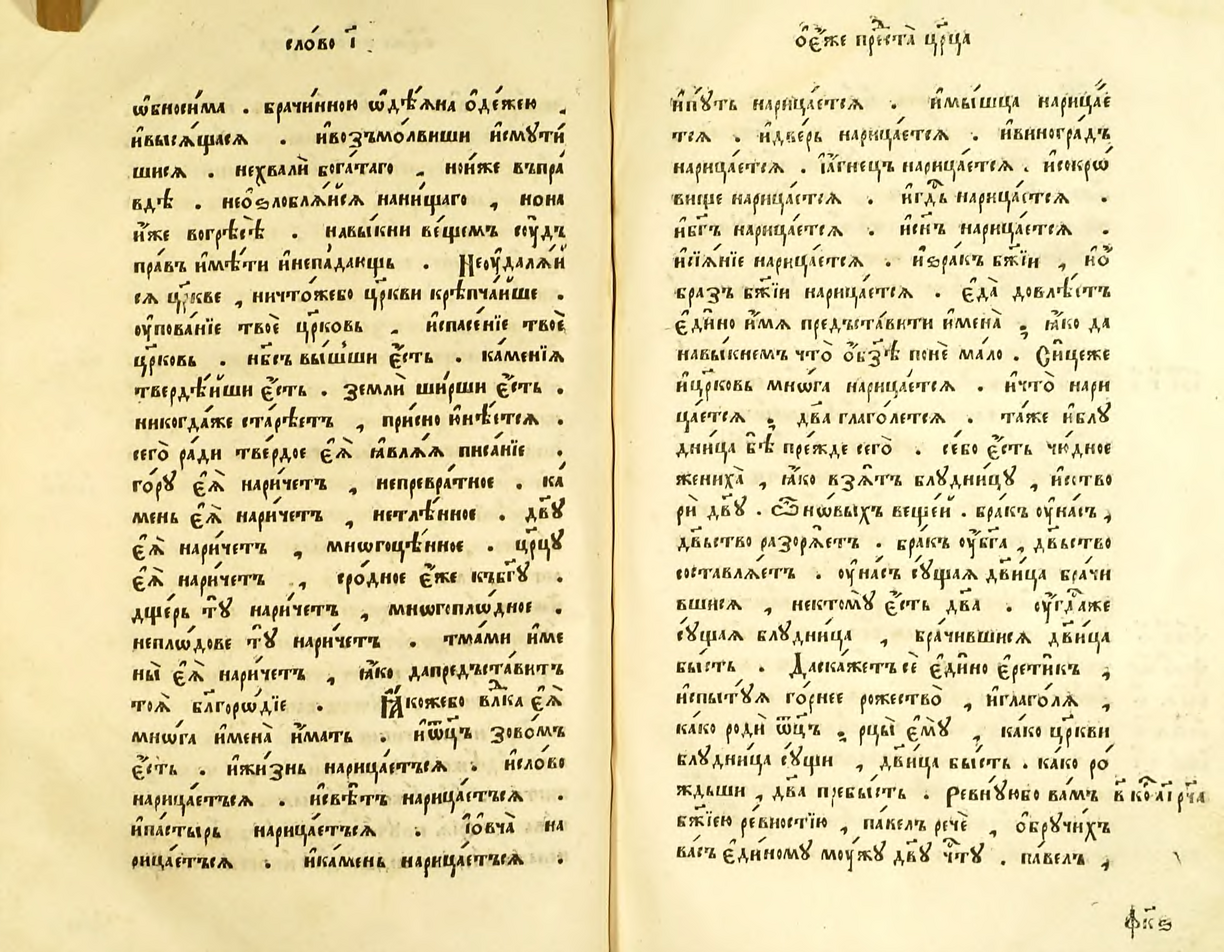 сло́во і҃ .
ѡ҆бноси́ма . брачи́нною ѡ҆дѣ́ѧна ѻ҆де́жею .
и҆высѧ́щаѧсѧ . и҆возъмо́лвиши и҆смѹти́
шисѧ . нехвали̇̀ бога́таго . нои҆́же въпра́
вдѣ . неѻ҆ѕлоблѧ́и҆сѧ нани́щаго , нона
и҆́же вогрѣсѣ̀ . навы́кни ве́щемъ соу́дъ
пра́въ и҆мѣ́ти и҆непа́дающь . Неоу҆далѧ́и
сѧ цр҃кве , ничто́жебо цр҃кви крѣпча́йше .
оу҆пова́нїе твоѐ цр҃ковь . и҆спасе́нїе твоѐ
цр҃ковь . нб҃съ вы́шши є҆́сть . ка́менїѧ
твердѣ́йши є҆́сть . земли̇̀ ши́рши є҆́сть .
никогда́же старѣ́етъ , при́сно ю҆нѣ́етсѧ .
сего̀ ра́ди тве́рдое є҆ѧ̀ ꙗ҆влѧ́ѧ писа́нїе .
го́рꙋ є҆ѧ̀ нари́четъ , непревра́тное . ка́
мень є҆ѧ̀ нари́четъ , нетлѣ́нное . дв҃ꙋ
є҆ѧ̀ нари́четъ , мнѡгоцѣ́нное . цр҃цꙋ
є҆ѧ̀ нари́четъ , сро́дное є҆́же къбг҃ꙋ .
дще́рь тꙋ̀ нари́четъ , мнѡгоплѡ́дное .
неплѡ́дове тꙋ̀ нари́четъ . тма́ми име
ны̀ є҆ѧ̀ нари́четъ , ꙗ҆́ко дапредъста́витъ
тоѧ̀ бл҃горѡ́дїе . Ꙗ҆́кожебо влⷣка є҆ѧ̀
мнѡ́га и҆мена̀ и҆́мать . и҆ѻ҆ц҃ъ зово́мъ
є҆́сть . и҆жи́знь нарица́етъсѧ . и҆сло́во
нарица́етъсѧ . и҆свѣ́тъ нарица́етъсѧ .
и҆па́стырь нарица́етъсѧ . і҆ѻ҆вча̀ на
рица́етъсѧ . и҆ка́мень нарица́етъсѧ .
ѻ҆є҆́же преста̀ цр҃ца
и҆пꙋ́ть нарица́етсѧ . и҆мы́шца нарица́е
тсѧ . и҆две́рь нарица́етсѧ . и҆виногра́дъ
нарица́етсѧ . і҆а҆́гнецъ нарица́етсѧ . и҆сокрѡ́
вище нарица́етсѧ . и҆гдⷭ҇ь нарица́етсѧ .
и҆бг҃ъ нарица́етсѧ . и҆сн҃ъ нарица́етсѧ .
и҆сїѧ́нїе нарица́етсѧ . и҆ѕра́къ бж҃їи , и҆ѻ҆́
бразъ бж҃їи нарица́етсѧ . є҆да̀ довлѣ́етъ
є҆ди́но и҆́мѧ предъста́вити и҆мена̀ ; ꙗ҆́ко да
навы́кнемъ что̀ ѻ҆бз҃ѣ понѐ ма́ло . Си́цеже
и҆цр҃ковь мнѡ́га нарица́етсѧ . и҆что̀ нари
ца́етсѧ ; дв҃а глаго́летсѧ . та́же и҆блꙋ
дни́ца бѣ̀ пре́жде сего̀ . се́бо є҆́сть чю́дное
жениха̀ , ꙗ҆́ко взѧ́тъ блꙋдни́цꙋ , и҆сотво
рѝ дв҃ꙋ . Ѽнѡ́выхъ веще́й . бра́къ оу҆на́съ ,
дв҃ьство разорѧ́етъ . бра́къ оу҆бг҃а , дв҃ьство
составлѧ́етъ . оу҆на́съ сꙋ́щаѧ дв҃ица брачи́
вшисѧ , нектомꙋ̀ є҆́сть дв҃а . оу҆гдⷭ҇а́же
сꙋ́щаѧ блꙋдни́ца , брачи́вшисѧ дв҃ица
бы́сть . Даска́жетъсѐ є҆ди́но є҆рети́къ ,
и҆спытꙋ́ѧ го́рнее рожество̀ , и҆глаго́лѧ ,
ка́ко родѝ ѻ҆ц҃ъ ; рцы̀ є҆мꙋ̀ , ка́ко цр҃кви
блꙋдни́ца сꙋ́щи , дв҃ица бы́сть . ка́ко ро́
ждьши , дв҃а пребы́сть . Ревнꙋ́юбо ва́мъ
бж҃їею ре́вностїю , па́велъ речѐ , ѻ҆брꙋчи́хъ
ва́съ є҆ди́номꙋ моу́жꙋ дв҃ꙋ чт҃ꙋ . па́велъ ,
фк҃ѕ